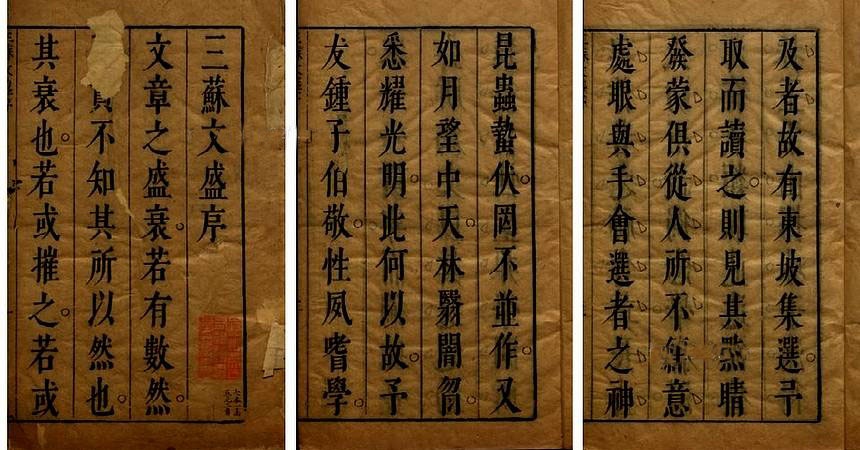 三蘇文盛序
文章之盛衰若有數然
不知其所以然也
其衰也若或摧之若或
昆蟲蟄伏罔不並作又
如月望中天林翳闇曶
悉耀光明此何以故予
友鍾子伯敬性夙嗜學
及者故有東坡集選予
取而讀之則見其㸃睛
發蒙俱從人所不意
處眼與手會選者之神